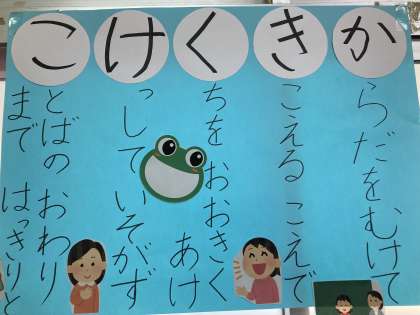 か
らだをむけて
き
こえる こえで
く
ちを おおきく
あけ
け
っして いそがず
こ
とばの おわり
まで はっきりと